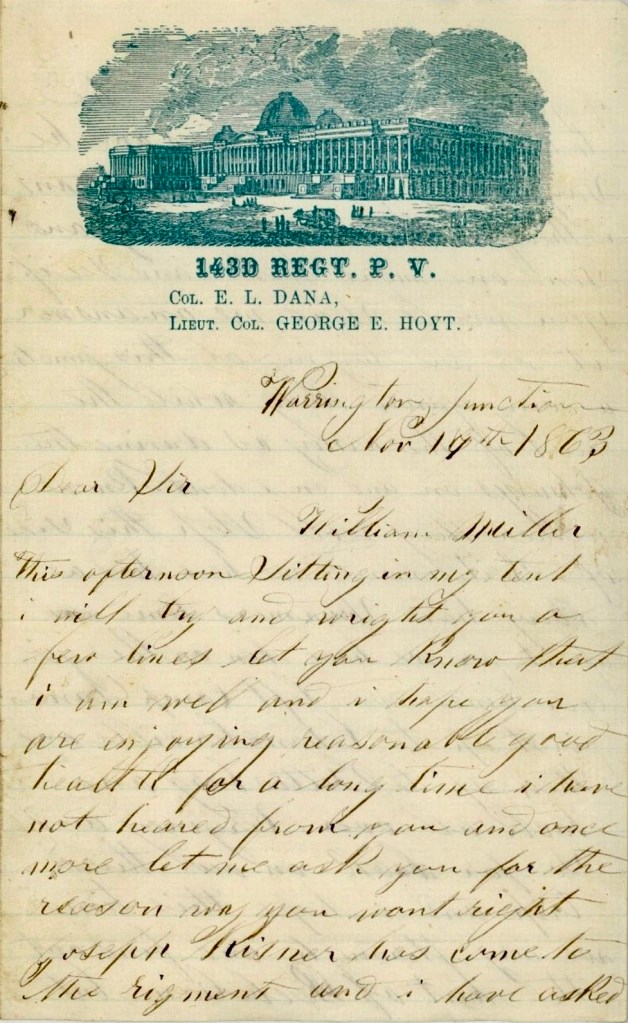 143D REGT. P. V.
COL. E. L. DANA,
LIEUT. COL. GEORGE E. HOYT.
Warrington Junction
Nov 19th 1863
Dear Sir
William Miller
this afternoon Sitting in my tent
i will try and wright you a
few lines let you know that
i am well and i hope you
are enjoying reasonable good
health for a long time i have
not heared from you and once
more let me ask you for the
reason way you wont right
Joseph Kisner has come to
the rigment and i have asked